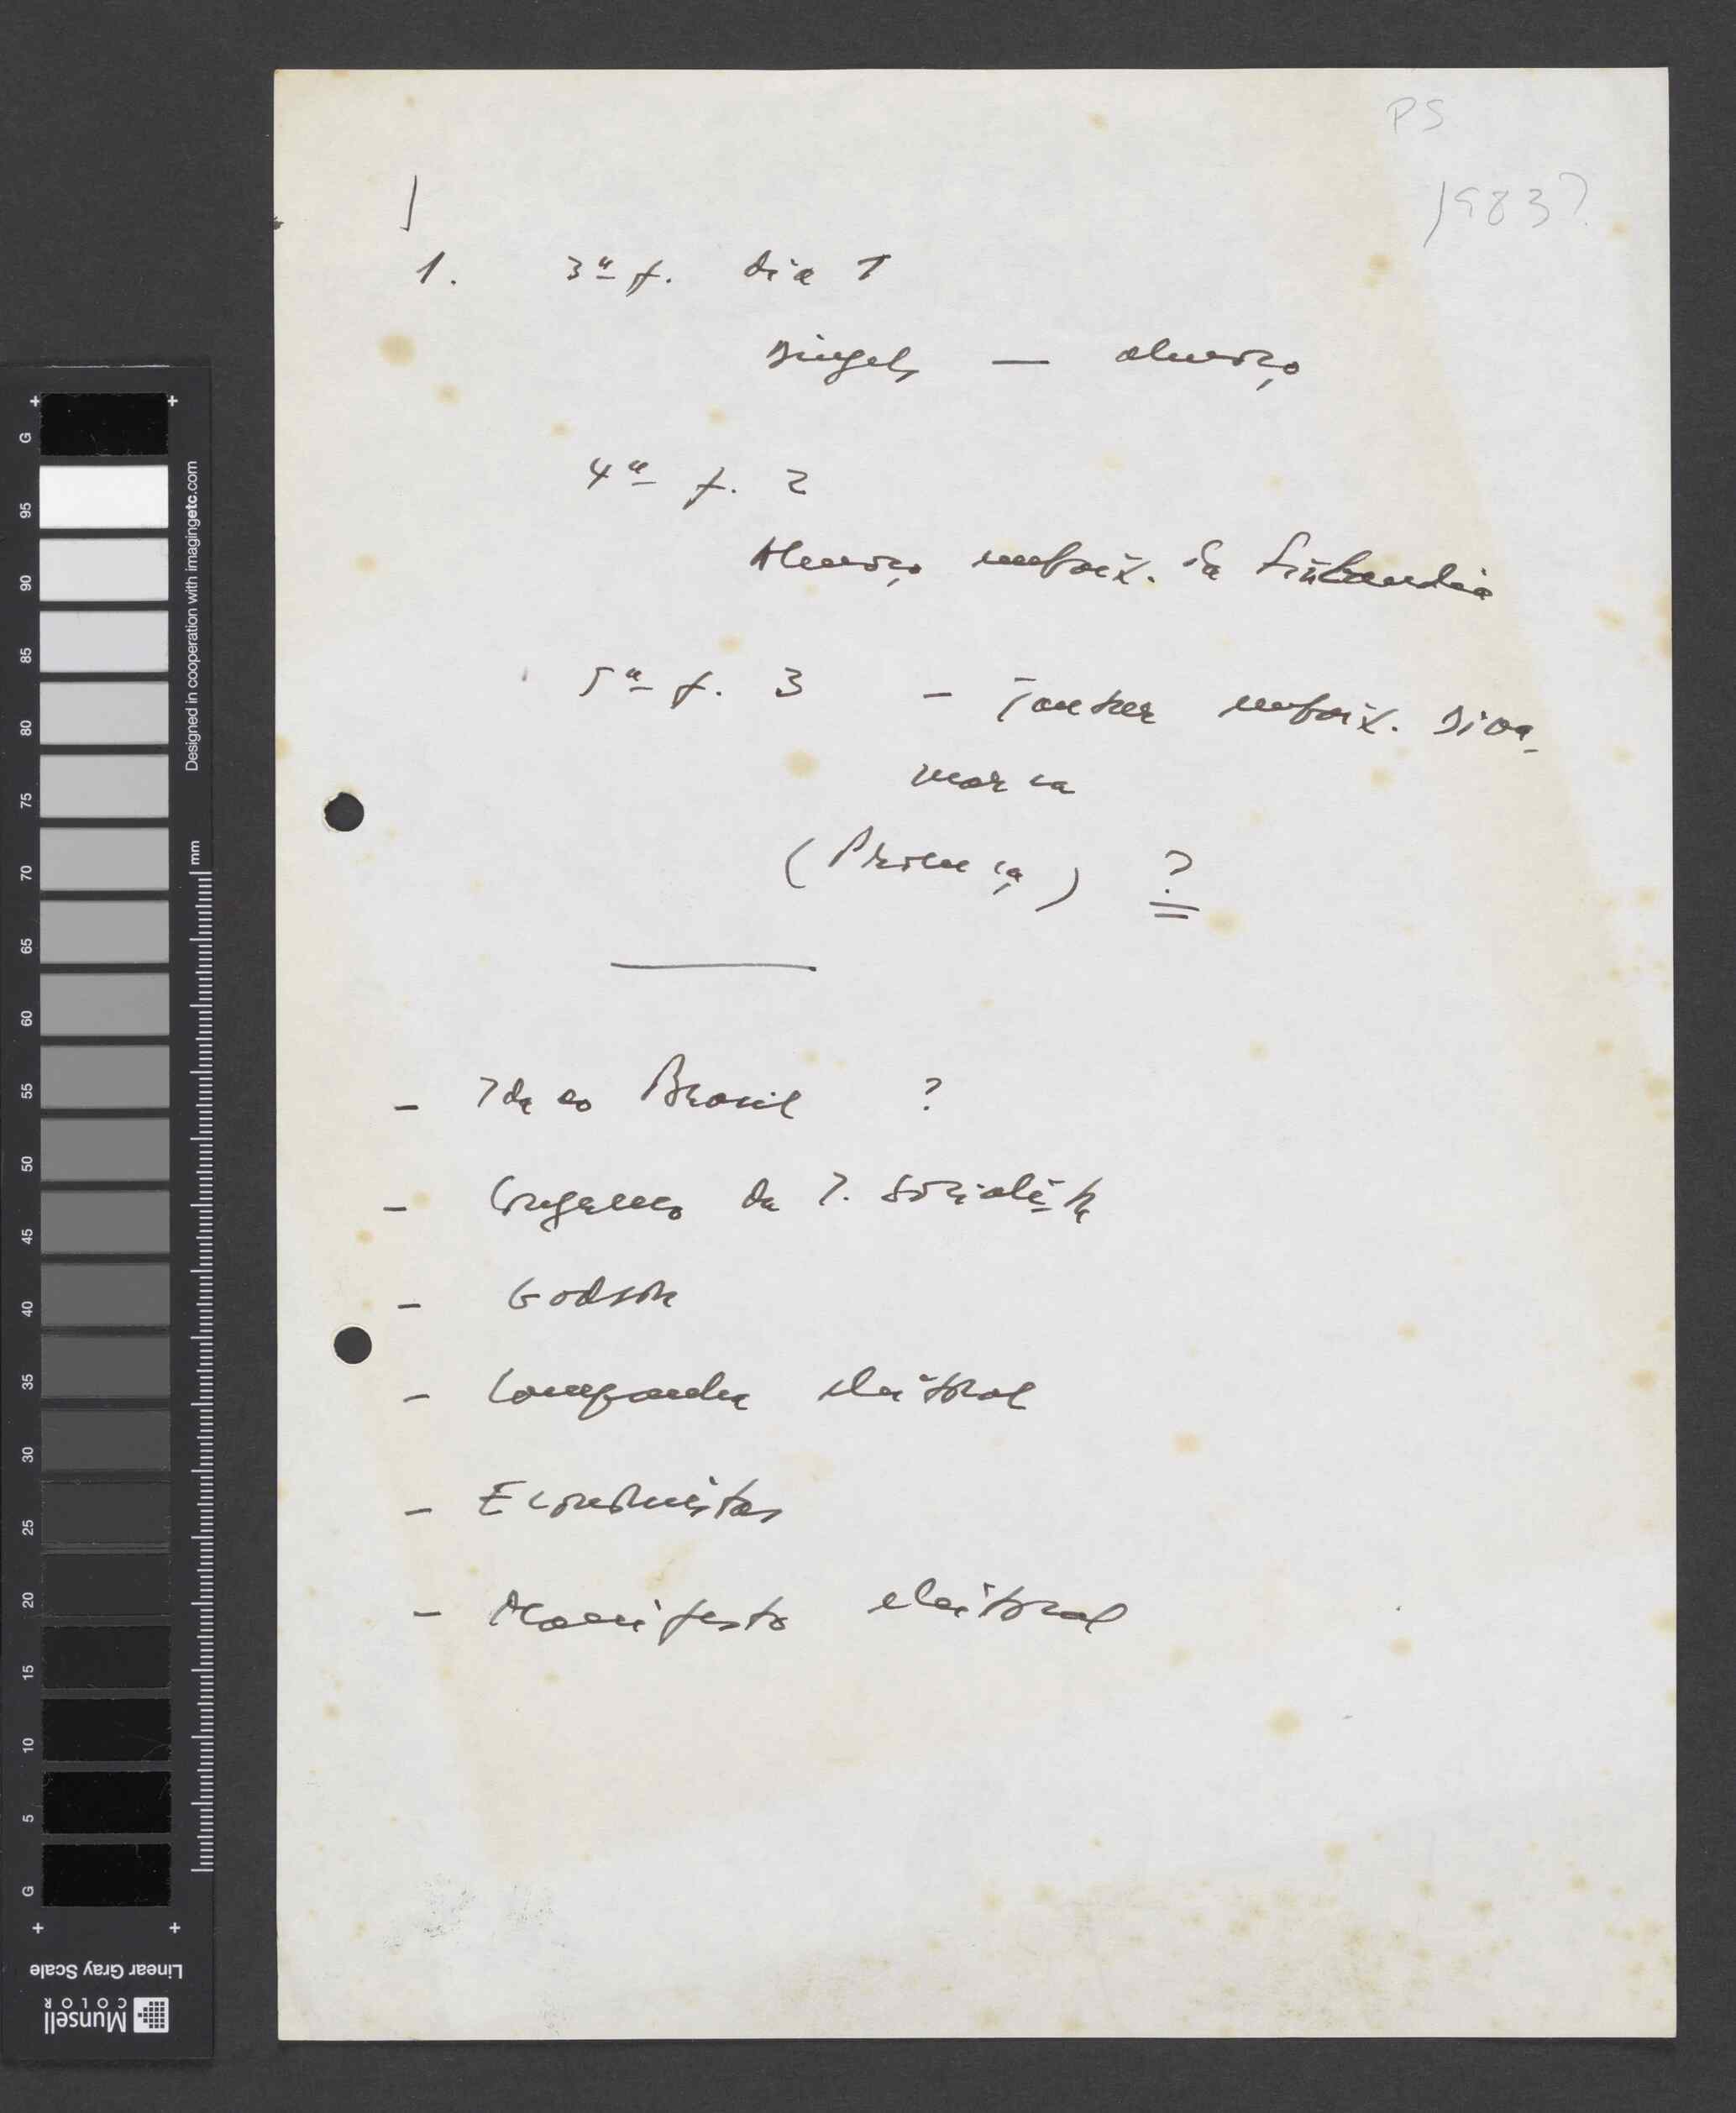 PS
1983?
1. 3ª f. dia 1
Dingels — almoço
4ª f. 2
Almoço embaix. da Finlandia
5ª f. 3 - Jantar embaix. Dina-
marca
(Proença) ?
- Ida ao Brasil ?
- Congresso da I. Socialista
- Godson
- Campanha eleitoral
- Economistas
- Manifesto eleitoral
G
95
90
85
80
75
70
65
60
55
50
45
40
35
30
25
20
15
10
5
G
mm
Designed in cooperation with imagingetc.com
Linear Gray Scale
Munsell
COLOR